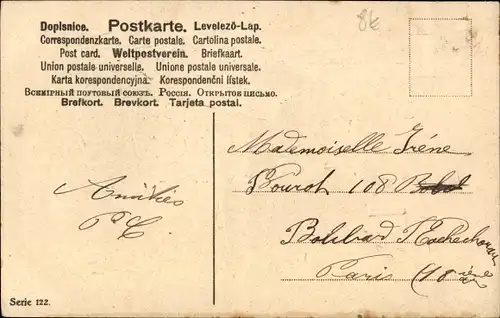 Dopisnice. Postkarte. Levelező-Lap.
Correspondenzkarte. Carte postale. Cartolina postale.
Post card. Weltpostverein. Briefkaart.
Union postale universelle. Unione postale universale.
Karta korespondencyjna. Korespondenční lístek.
Всемірный почтовый союзъ. Россія. Открытое письмо.
Brefkort. Brevkort. Tarjeta postal.
Mademoiselle Iréne
108
Amitiés
Boulvard Rochechouart
Paris (18
Serie 122.